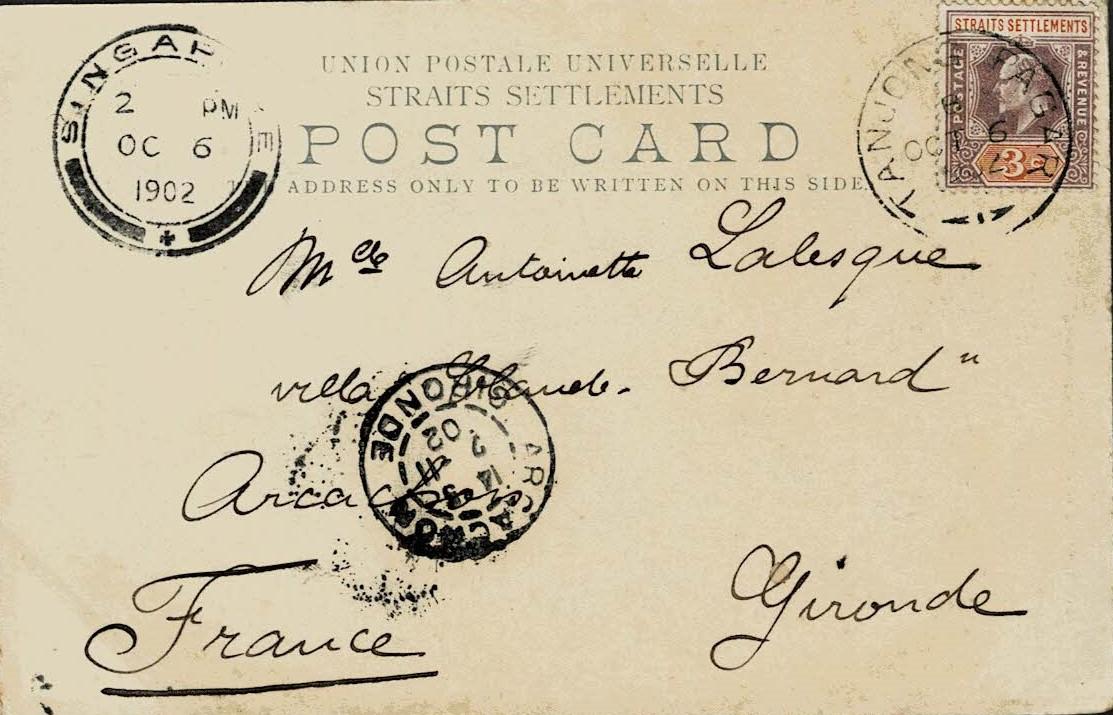 STRAITS SETTLEMENTS
POSTAGE & REVENUE
3c
TANJONG PAGAR
OCT 6
SINGAP E
2 PM
OC 6
1902
UNION POSTALE UNIVERSELLE
STRAITS SETTLEMENTS
POST CARD
ADDRESS ONLY TO BE WRITTEN ON THIS SIDE.
Mlle Antoinette Lalesque
villa Bernard"
Arcachon
Gironde
France
ARCACHON
GIRONDE
14
02